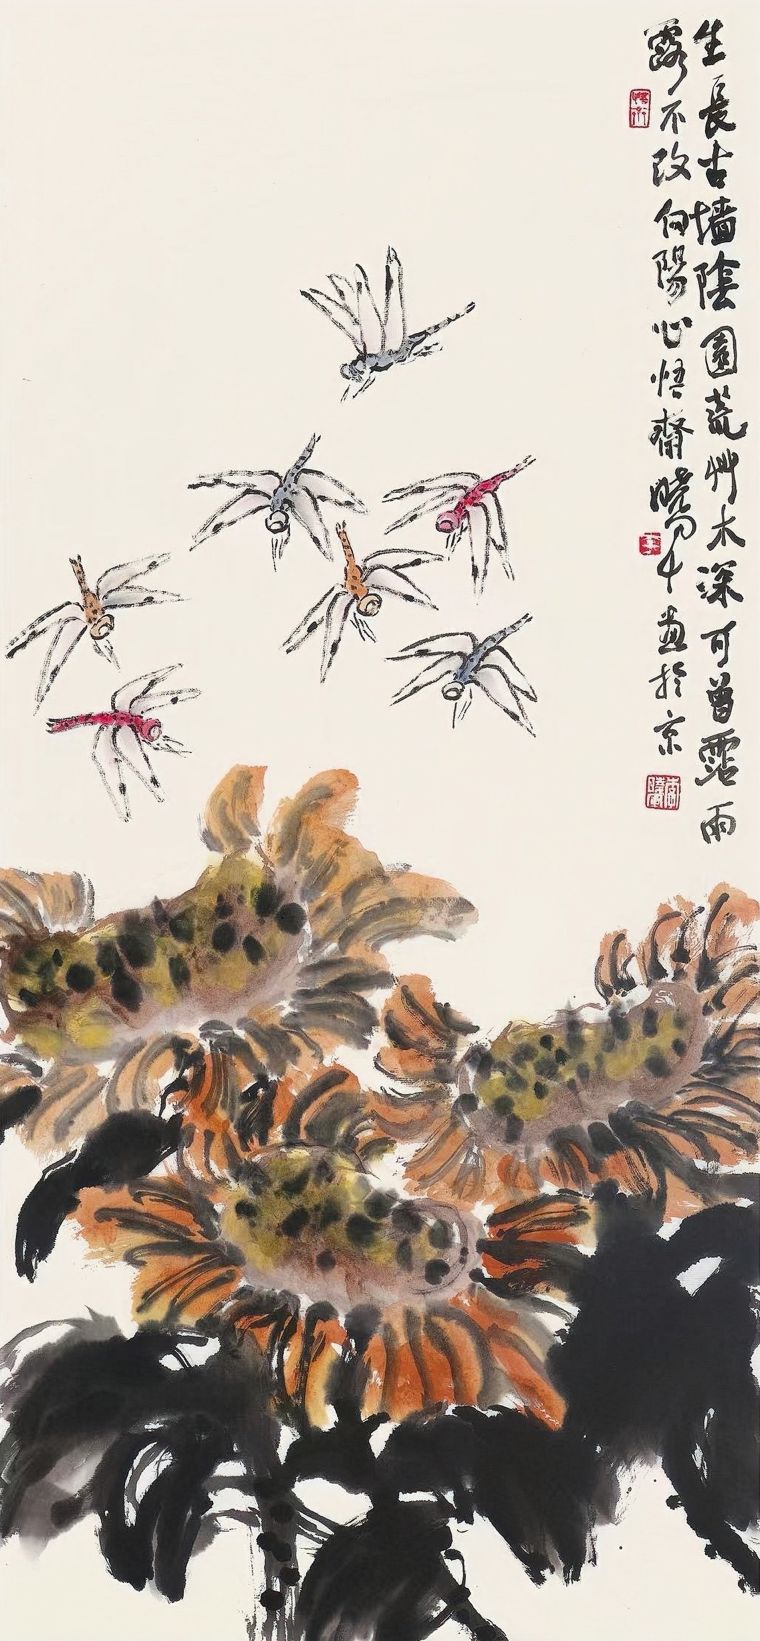 生長古墻陰園荒艸木深可曾霑雨
露不改向陽心悟齋曉可十畫於京